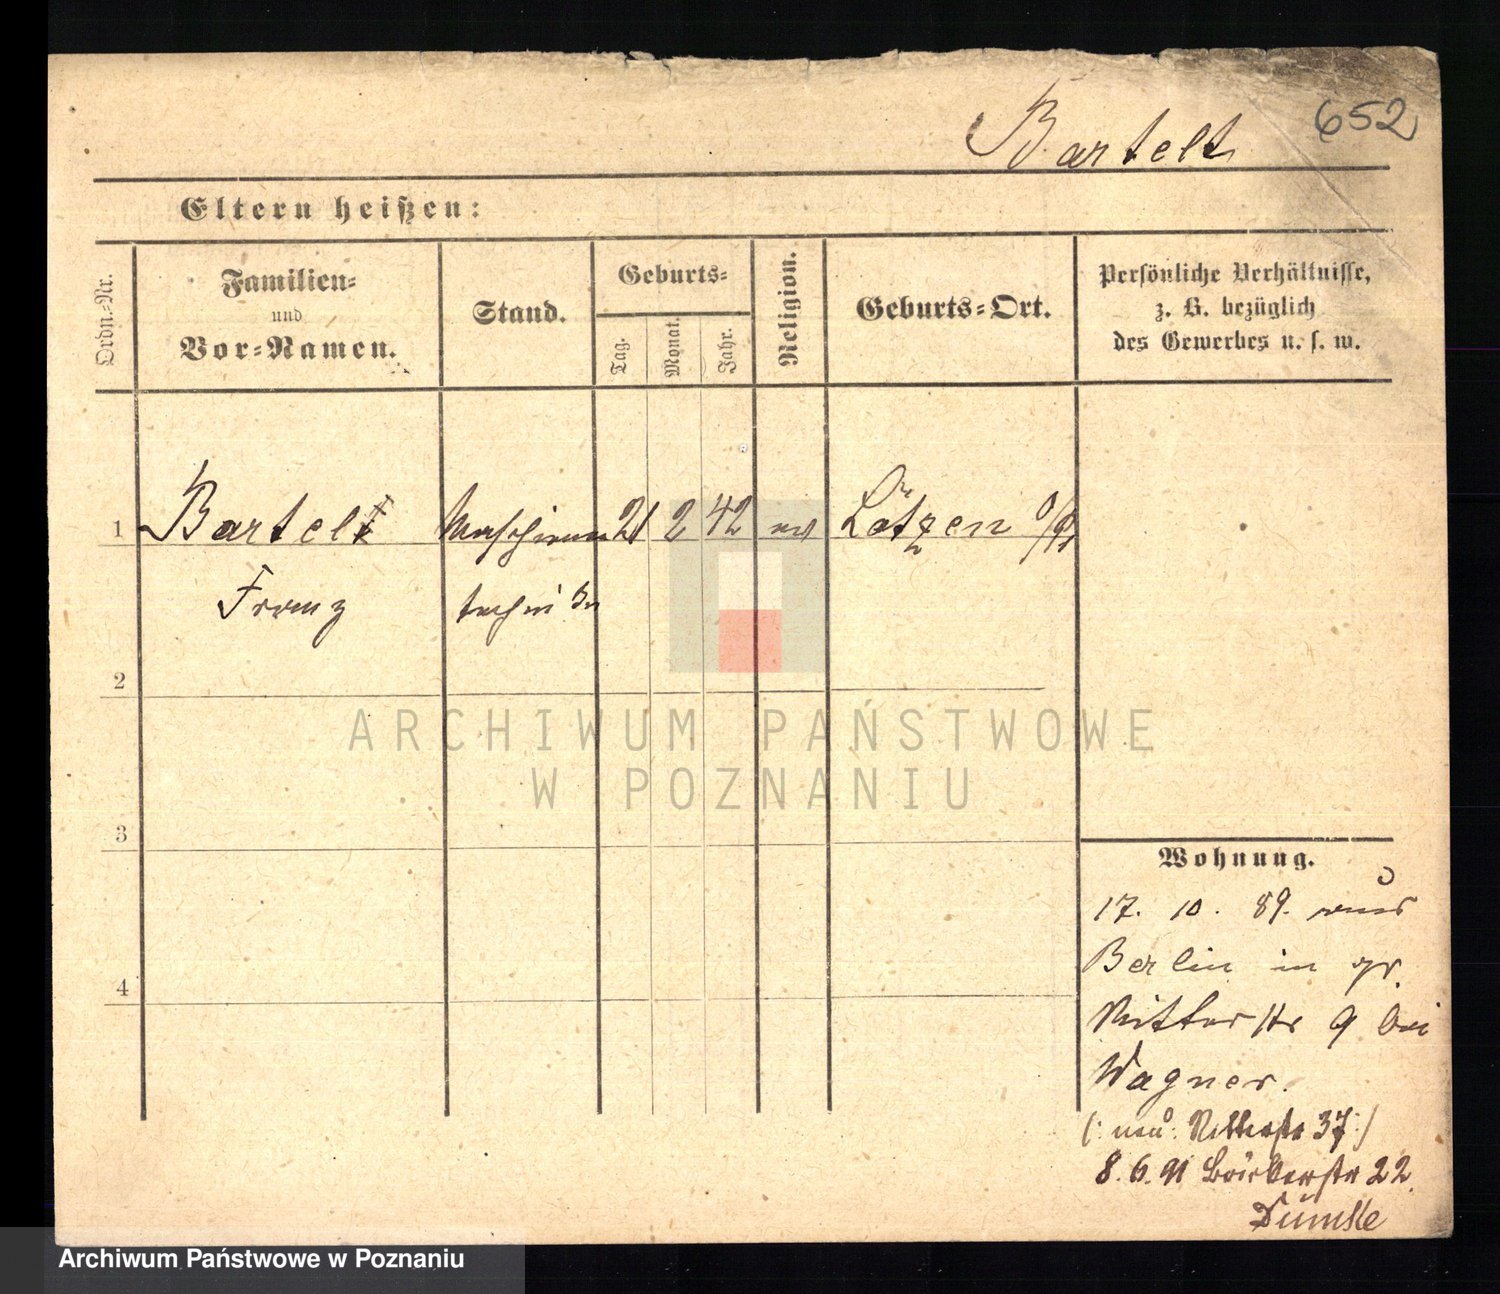 652
Bartelt
Eltern heißen:
Ordn.-Nr.
Familien-
und
Vor-Namen.
Stand.
Geburts-
Tag.
Monat.
Jahr.
Religion.
Geburts-Ort.
Persönliche Verhältnisse,
z. B. bezüglich
des Gewerbes u. s. w.
1 Bartelt Maschinen 21 2 42 ev Lötzen O/Pr
Franz
2
3
4
ARCHIWUM PAŃSTWOWE
W POZNANIU
Wohnung.
17. 10. 89. aus
Berlin in gr.
Ritterstr 9 bei
Wagner.
(: neu: Ritterstr 37 :)
8. 6. 91 Bäckerstr 22
Archiwum Państwowe w Poznaniu